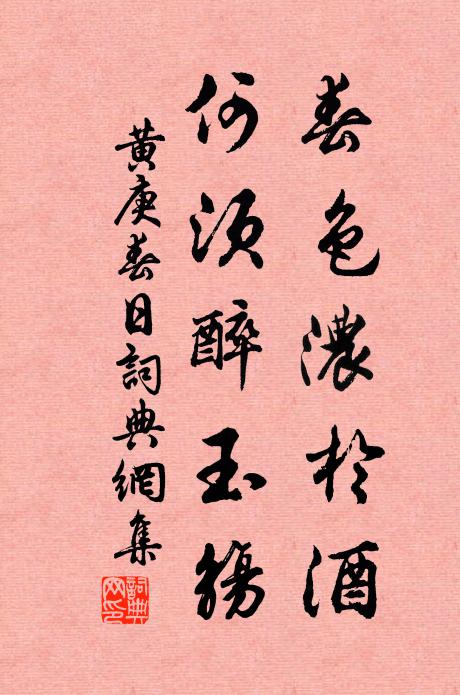 春色濃於酒
何須醉玉觴
黃庚春日詞典網集
詞典網印